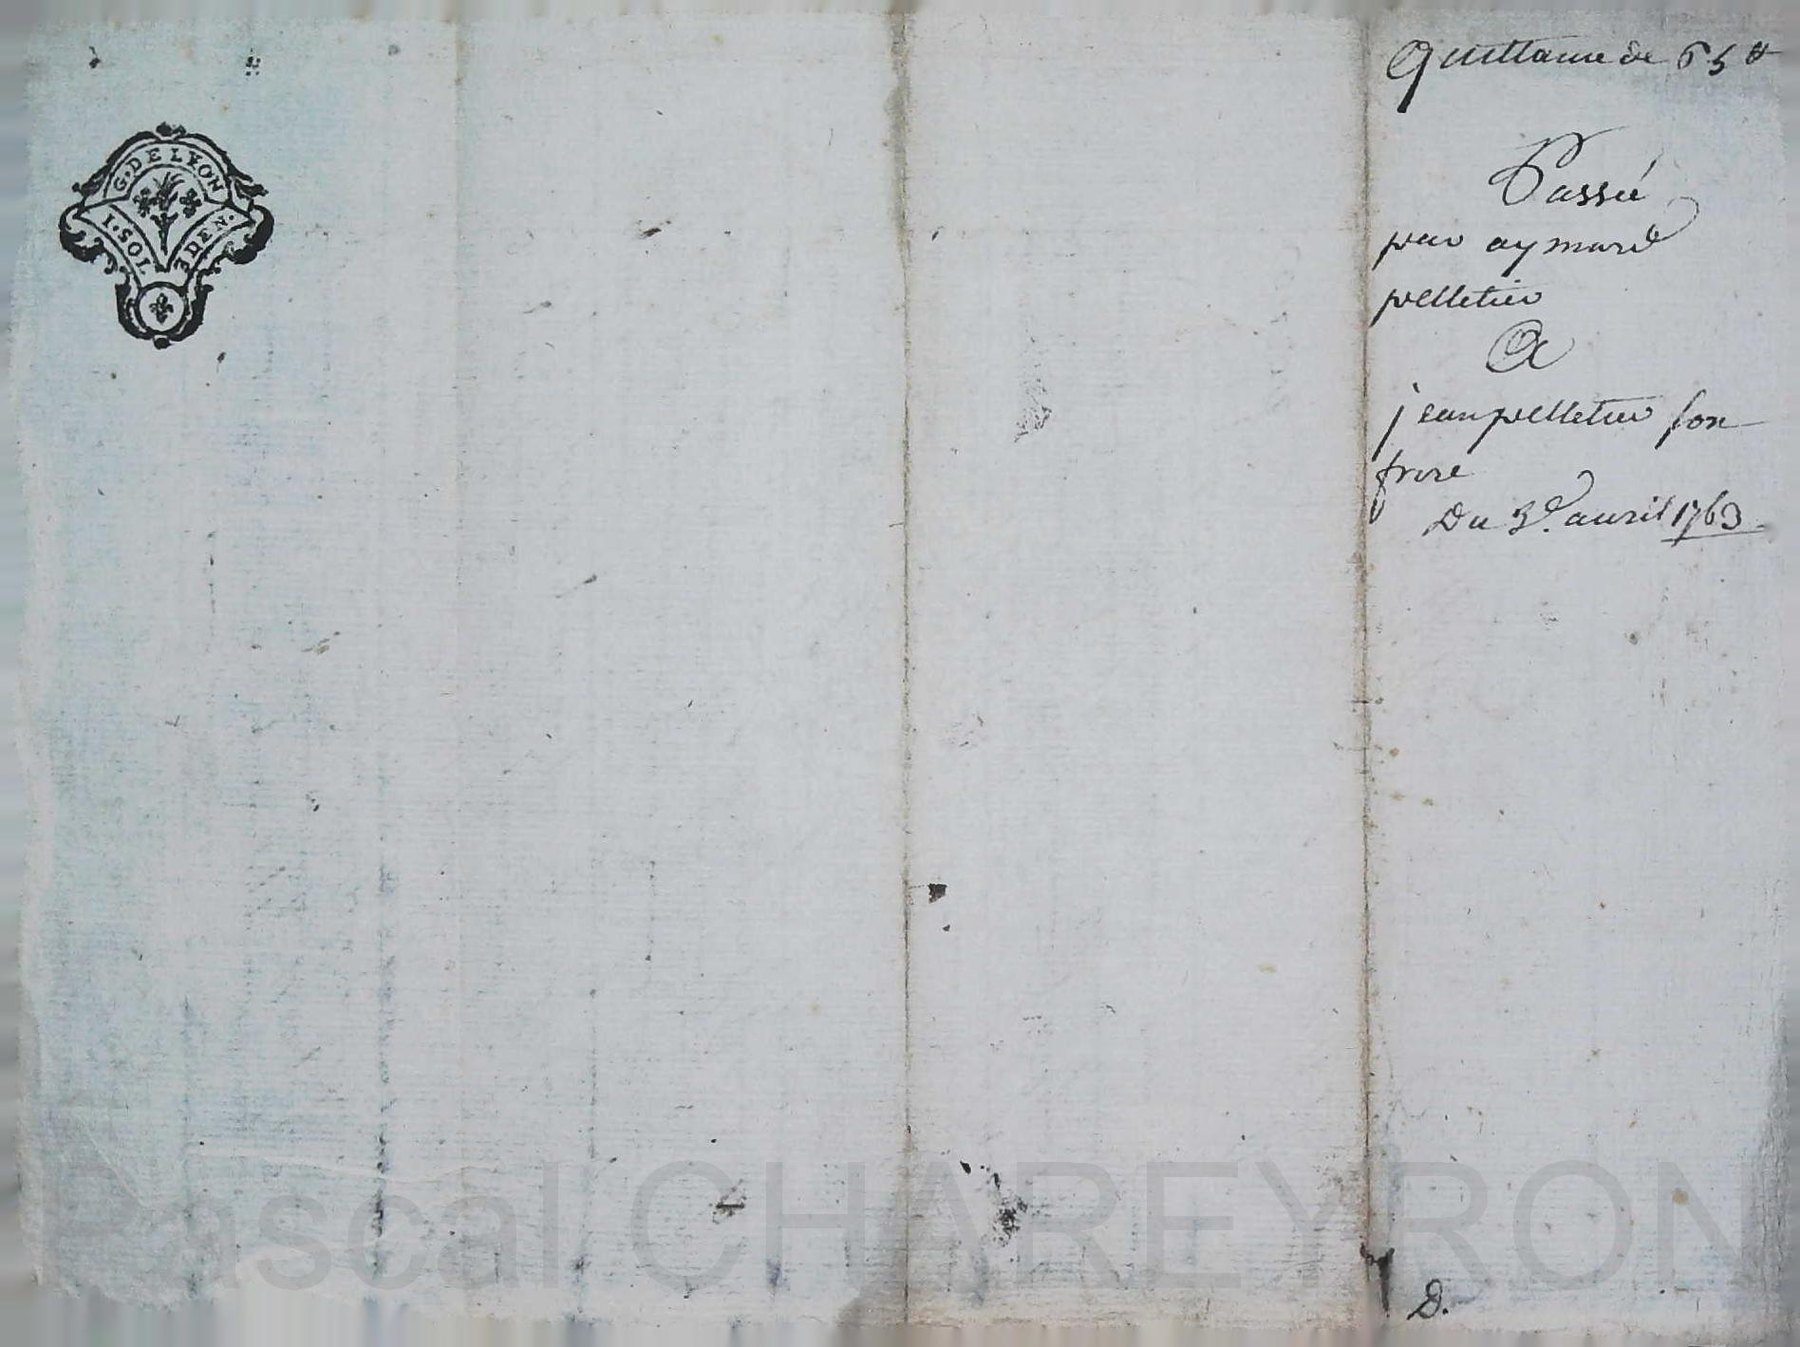 G. DE LYON
I. SOL 3 DEN.
Quittance de 65 ₶
Passée
par aymard
pelletier
A
jean pelletier son
frere
Du 3e. auril 1763
D.
Pascal CHAREYRON